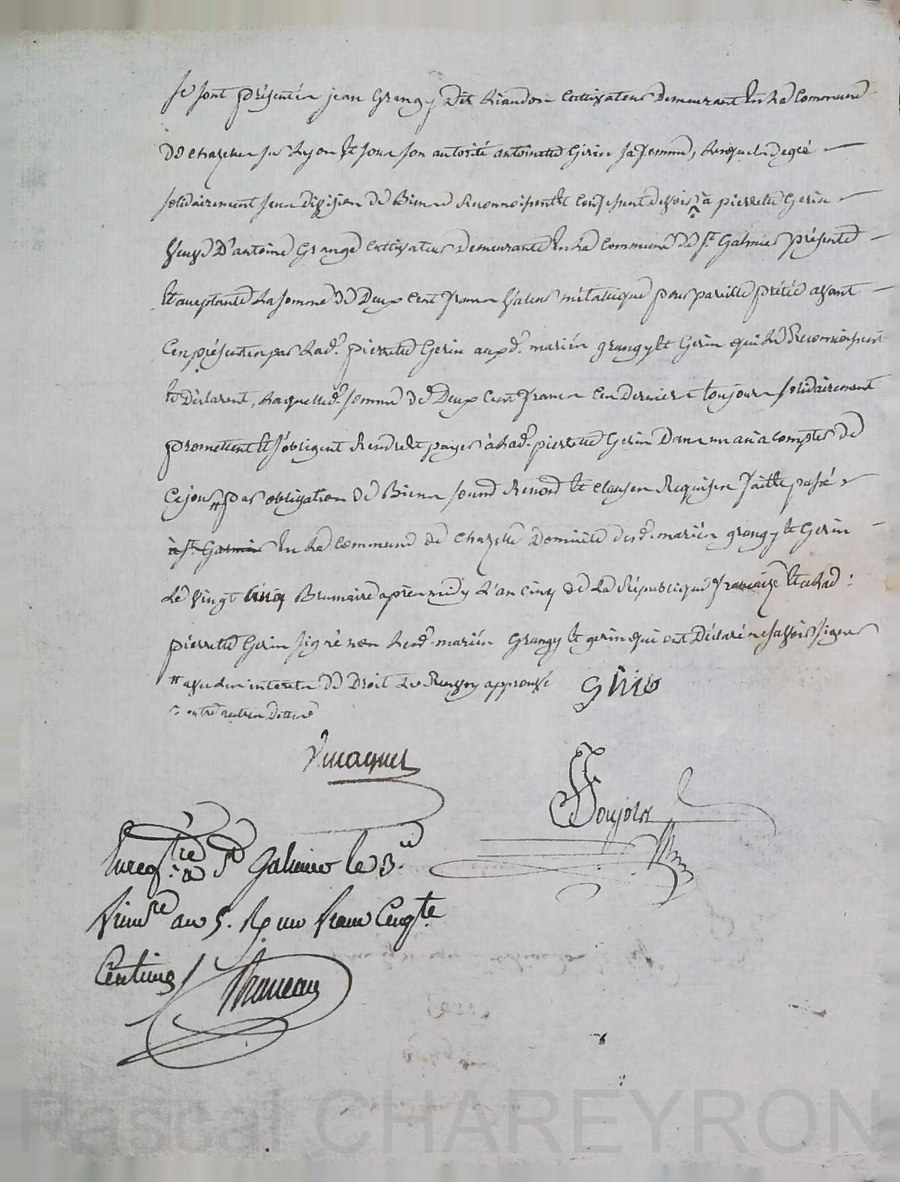 se sont présentés jean Grangy dit Riandon Cultivateur demeurant en la Commune
de chazelle sur Lyon et sous son autorité antoinette Gerin sa femme, lesquels de gré
solidairement sans division de Biens Reconnoissent et Confessent devoir à pierrette Gerin
veuve D'antoine Grange Cultivateur demeurante en la Commune de St Galmier présente
et acceptante la somme de Deux Cent francs valeur métallique pour pareille prêtée avant
Ces présentes par lad. pierrette Gerin auxd. mariés grangy et Gerin qui le Reconnoissent
et déclarent, laquelle d. somme de Deux Cent francs Ces derniers toujours solidairement
promettent et s'obligent Rendre et payer à lad. pierrette Gerin Dans un an a compter de
Ce jour # par obligation de Biens soumis Renoncé et clauses Requises fait et passé
à St Galmier En la Commune de chazelle Domicile desd. mariés grangy et Gerin
Le vingt cinq Brumaire après midy L'an cinq de la République française et a lad:
pierrette Gerin signé non lesd. mariés Grangy et gerin qui ont Déclaré ne savoir signer
# avec les interets de Droit le Renvoy approuvé
Gerin
outre autres dette
Soujolas
Enregtré à St Galmier le 3.
frimre au 5. R un franc Cinqte
Centimes